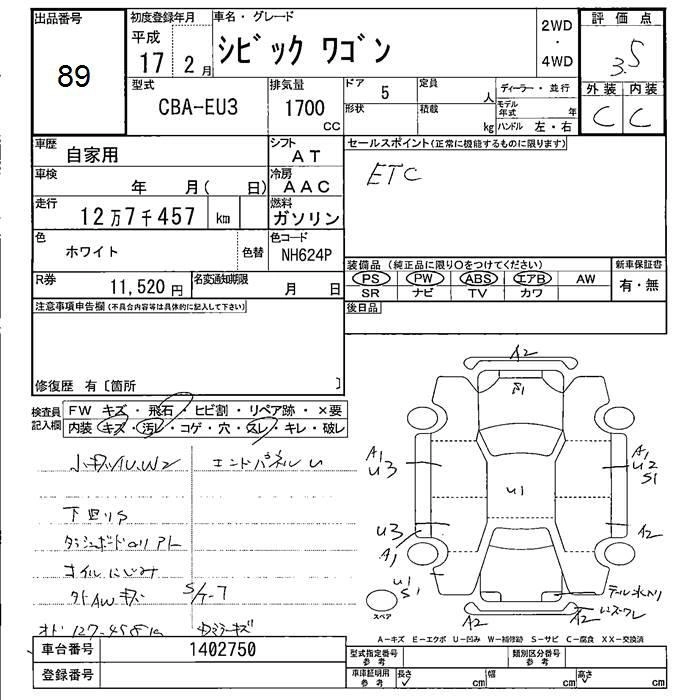 出品番号
89
初度登録年月
平成
17 2月
車名・グレード
シビック ワゴン
2WD
・
4WD
評価点
3.5
外装 内装
C C
型式
CBA-EU3
排気量
1700
CC
ドア 5
定員
人
形状
積載
kg
ディーラー・並行
モデル年式 年
ハンドル 左・右
車歴
自家用
シフト
AT
車検
年 月( 日)
冷房
AAC
走行
12万7千457 km
燃料
ガソリン
色
ホワイト
色替
色コード
NH624P
R券
11,520円
名変通知期限
月 日
セールスポイント(正常に機能するものに限ります)
ETC
装備品(純正品に限り○をつけてください)
PS PW ABS エアB AW
SR ナビ TV カワ
新車保証書
有・無
後日品
注意事項申告欄(不具合内容等は具体的に記入して下さい)
修復歴 有〔箇所 〕
検査員記入欄
FW キズ・飛石・ヒビ割・リペア跡・×要
内装 キズ・汚レ・コゲ・穴・スレ・キレ・破レ
小キズU.W2
エンドパネルU
下回りS
ダッシュボードのリアト
オイルにじみ
外AWキズ
S/T-7
オド 127.458km
ミラーキズ
A2
A1
A1
U3
A1
U2
S1
U1
U3
A1
A2
U1
S1
スペア
A2
A2
A-キズ E-エクボ U-凹み W-補修跡 S-サビ C-腐食 XX-交換済
車台番号
1402750
登録番号
型式指定番号
参考
類別区分番号
参考
車庫証明用
参考
長さ cm
幅 cm
高さ cm